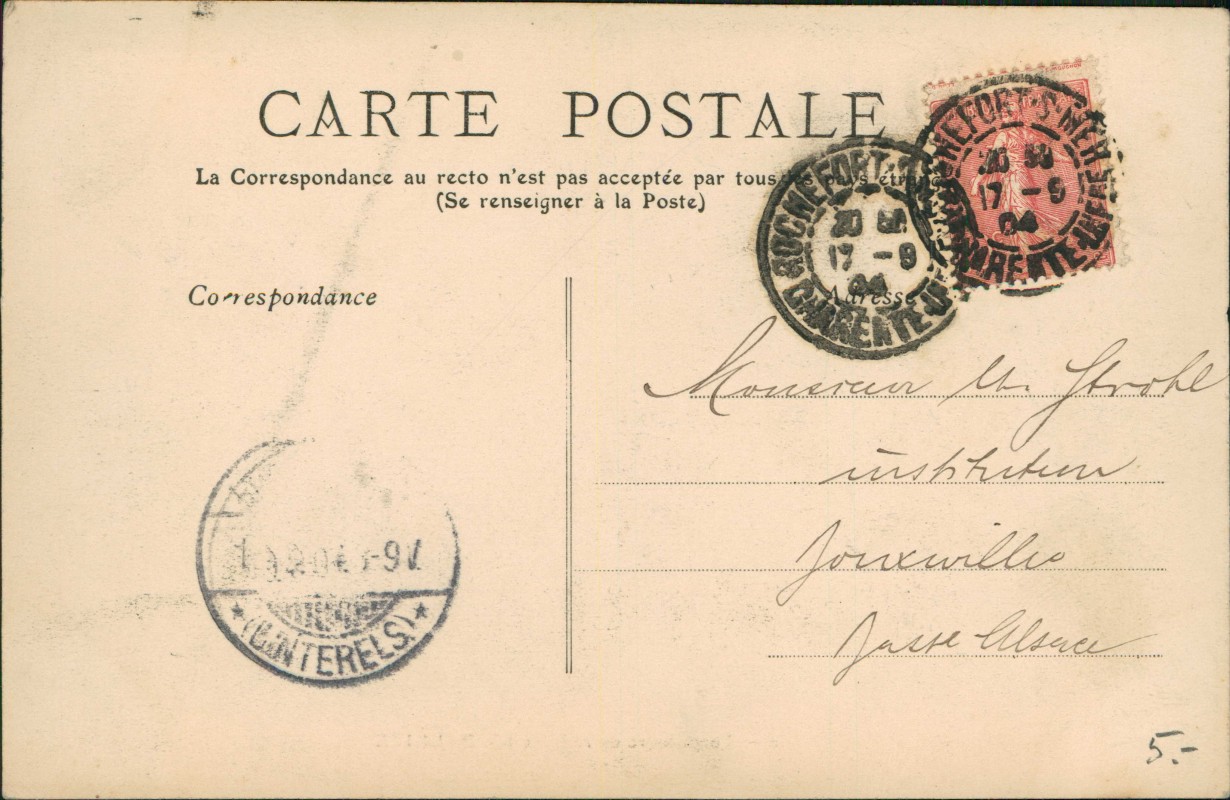 CARTE POSTALE
La Correspondance au recto n'est pas acceptée par tous pays étran
(Se renseigner à la Poste)
ROCHEFORT-S-MER
20 50
17 - 9
04
CHARENTE-INFRE
ROCHEFORT-S
20 50
17 - 9
04
CHARENTE-INF
Correspondance
Adresse
Monsieur Strohl
instituteur
Jouxwiller
Basse Alsace
9.04 -9V
* (UNTERELS.) *
5.-